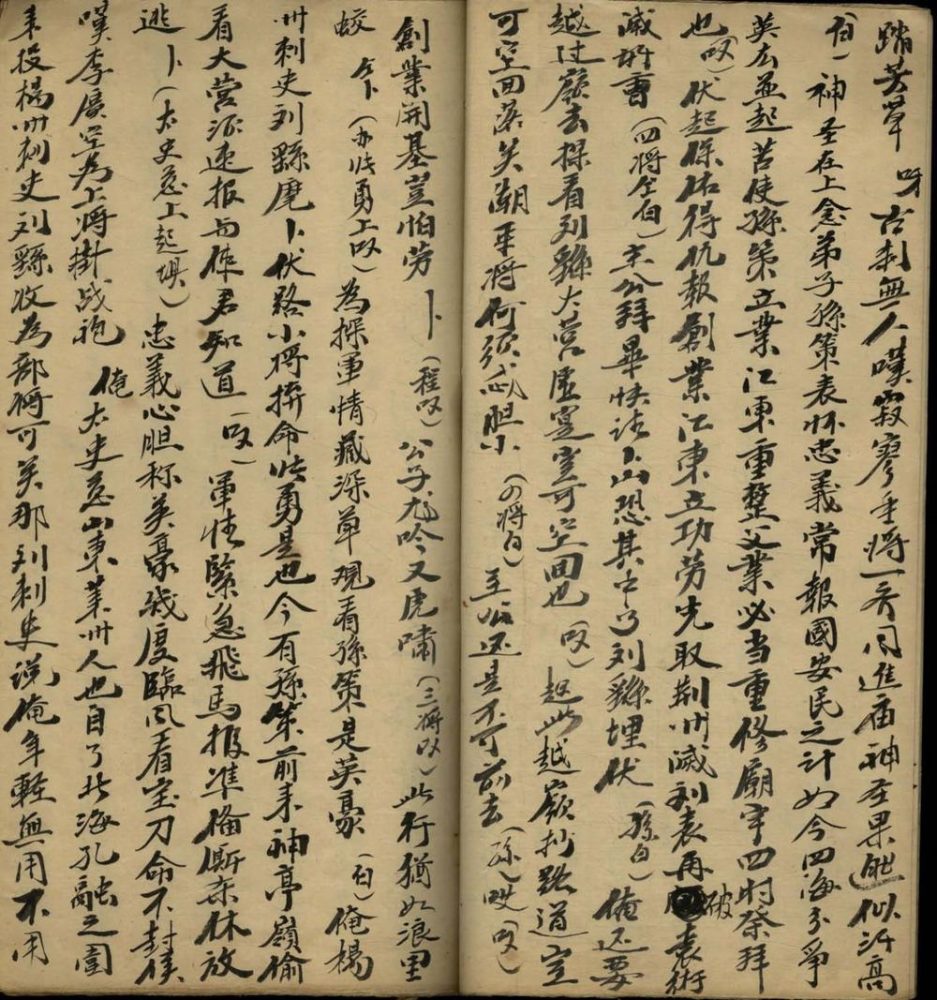 踏芳草　呀　古刹無人嘆寂寥手將一齐同進庙神圣果能似沂高
（白）神圣在上念弟子孫策表怀忠義常報國安民之计如今四海分爭
英雄並起苦使孫策立業江東重整父業必当重修廟宇四时祭拜
也（叹）伏起保佑得仇報創業江東立功劳先取荆州滅刘表再破袁術
滅曹（四将全白）主公拜畢快访下山恐其中了刘繇埋伏（孫白）俺还要
越过嶺去探看刘繇大营虚寔岂可空回也（叹）趁此越嶺抄路道岂
可空回落笑潮手將何须志胆小（四將白）主公还是不可前去（孫）哎（叹）
創業開基豈怕劳卜（程叹）公子龙吟又虎嘯（三將叹）此行猶如浪里
蛟　仝卜（勇上叹）為探軍情藏深草現看孫策是英豪（白）俺楊
州刺史刘繇麾下伏路小将拚命勇是也今有孫策前来神亭嶺偷
看大营须速报与使君知道（叹）軍情緊急飛馬报准俻厮杀休放
逃卜（太史慈上起垻）忠義心胆称英豪几度臨风看宝刀命不封侯
嘆李廣空為上将掛战袍　俺太史慈山東莱州人也自了北海孔融之圍
来投楊州刺史刘繇收為部將可笑那刘刺史说俺年軽無用不用